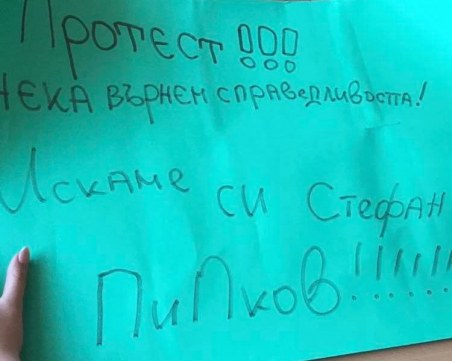 Протест!!!
Нека върнем справедливостта!
Искаме си Стефан
Пипков!!!!!!